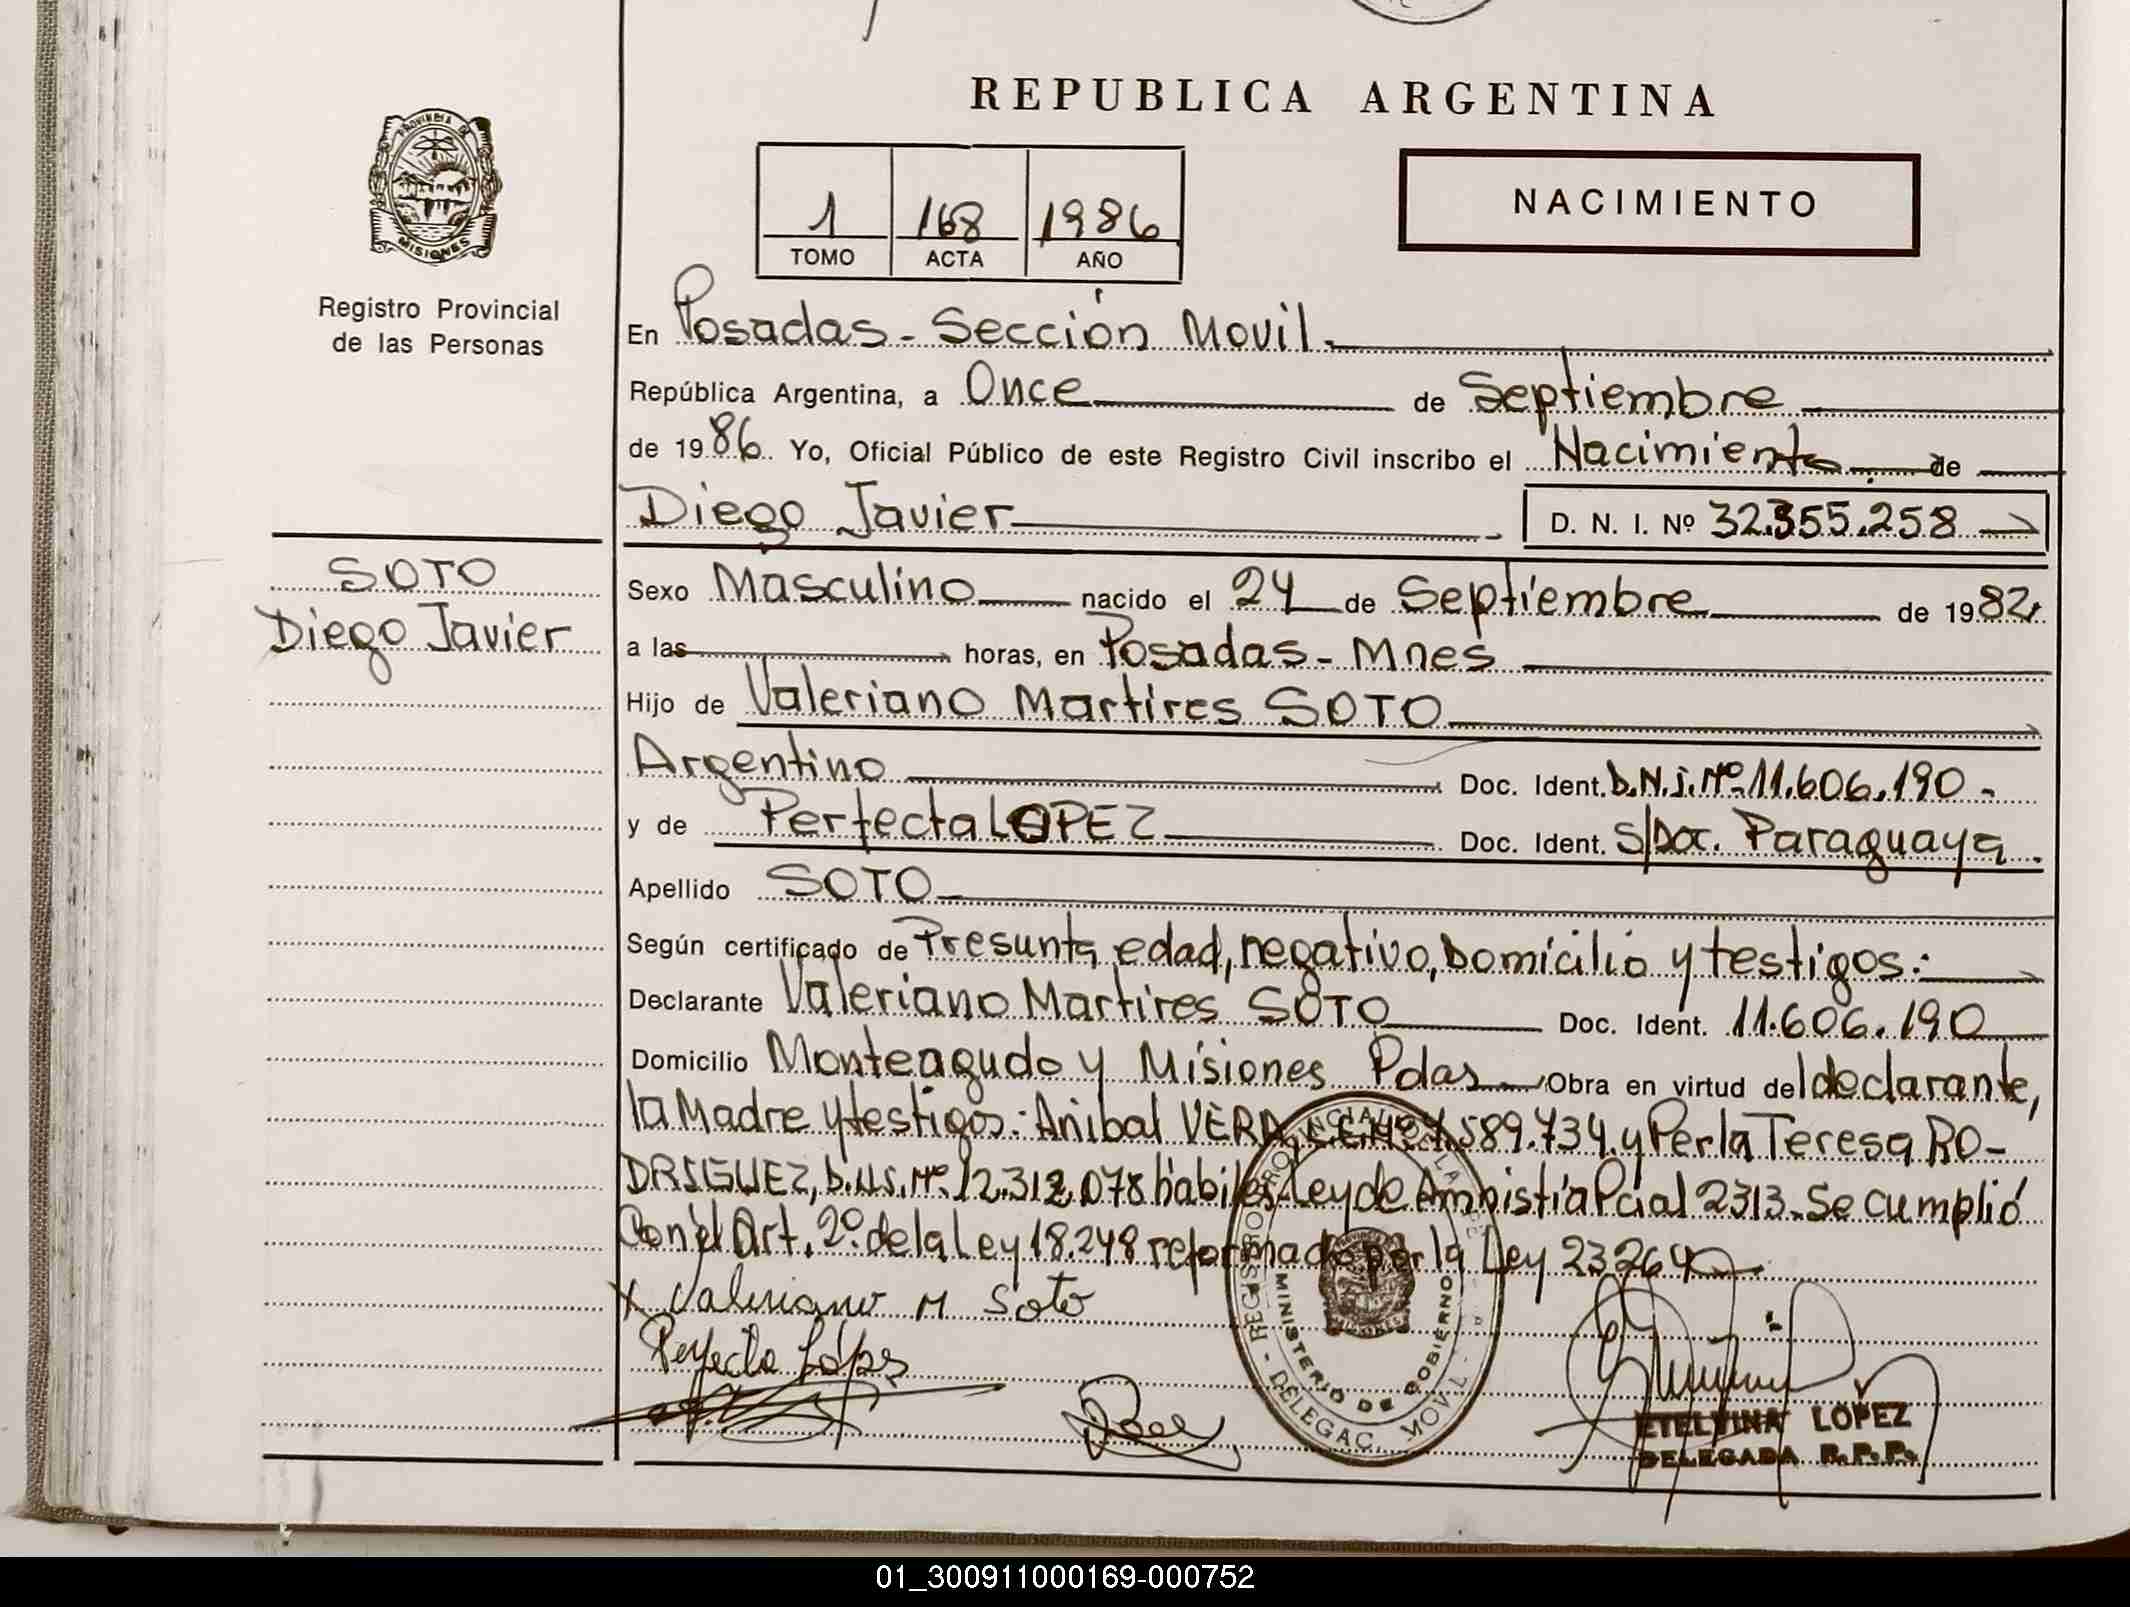 REPUBLICA ARGENTINA
PROVINCIA DE
MISIONES
Registro Provincial
de las Personas
1 168 1986
TOMO ACTA AÑO
NACIMIENTO
En Posadas - Sección Movil.
República Argentina, a Once de Septiembre
de 1986. Yo, Oficial Público de este Registro Civil inscribo el Nacimiento de
Diego Javier D. N. I. Nº 32.355.258
SOTO
Diego Javier
Sexo Masculino nacido el 24 de Septiembre de 1982.
a las horas, en Posadas - Mnes
Hijo de Valeriano Martires SOTO
Argentino Doc. Ident. D.N.I. Nº 11.606.190 -
y de Perfecta LOPEZ Doc. Ident. S/Doc. Paraguaya.
Apellido SOTO
Según certificado de Presunta edad, negativo, Domicilio y testigos:
Declarante Valeriano Martires SOTO Doc. Ident. 11.606.190
Domicilio Monteagudo y Misiones Pdas Obra en virtud del declarante,
la Madre y testigos: Anibal VERA, 589.734. y Perla Teresa RO-
DRIGUEZ, D.N.I. Nº 12.312.078 habiles - Ley de Amnistía Pcial 2313. Se cumplió
Con el Art. 2º de la Ley 18.248 reformado por la Ley 23264
X Valeriano M Soto
Perfecta López
REGISTRO PROVINCIAL DE LAS
DELEGAC. MOVIL
MINISTERIO DE GOBIERNO
MISIONES
ETELVINA LOPEZ
DELEGADA R.P.P.
01_300911000169-000752